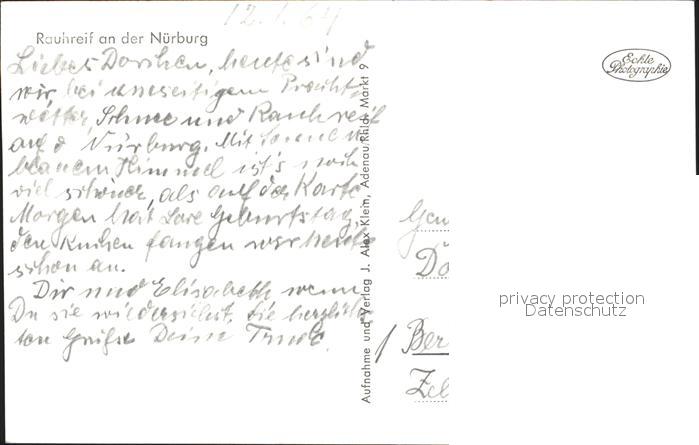 12.1.64
Rauhreif an der Nürburg
Liebes Dorchen, heute sind
wir bei Pracht-
wetter, Schnee und Rauhreif
auf d Nürburg. Mit Sonne u
blauem Himmel ist's noch
viel schöner, als auf der Karte
Morgen hat Lore Geburtstag,
den Kuchen fangen wir heute
schon an.
Dir und Elisabeth wenn
Du sie wiedersiehst, die herzlich-
sten Grüße Deine Trude.
Aufnahme und Verlag J. Alex Klein, Adenau/Rhld. Markt 9
Echte
Photographie
Do
privacy protection
Datenschutz
Ber